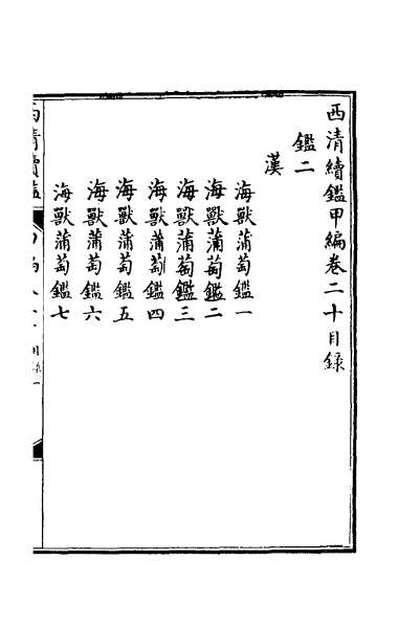 西清續鑑甲編卷二十目錄
鑑二
漢
海獸蒲萄鑑一
海獸蒲萄鑑二
海獸蒲萄鑑三
海獸蒲萄鑑四
海獸蒲萄鑑五
海獸蒲萄鑑六
海獸蒲萄鑑七